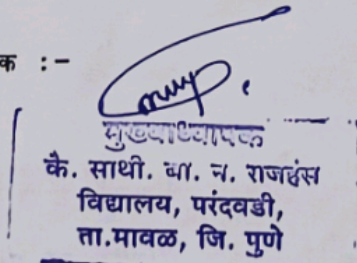 क :-
मुख्याध्यापक
कै. साथी. बा. न. राजहंस
विद्यालय, परंदवडी,
ता.मावळ, जि. पुणे